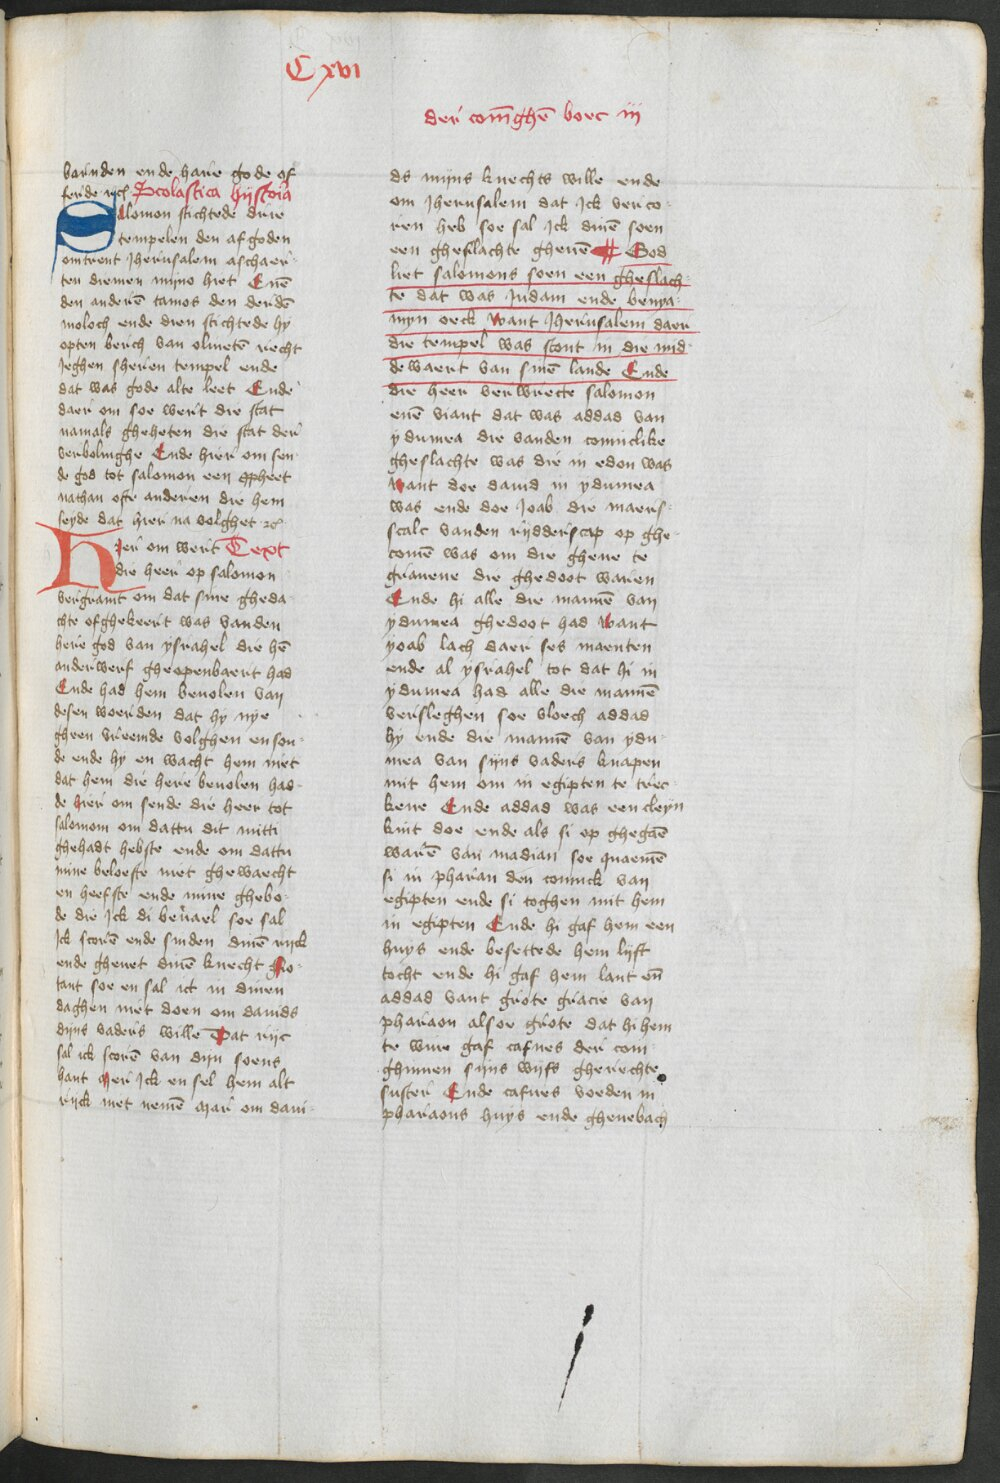 Cxvi
der coni͞ghē boec iij
barnden ende hare gode of
ferde rcͣ Scolastica hystoria
Salomon stichtede drie
tempelen den afgoden
omtrent Jherusalem aschaer
ten diemen mijno hiet Enē
den anderē tamos den derdē
moloch ende dien stichtede hy
opten berch van olivetē recht
Jeghen sheren tempel ende
dat was gode alte leet Ende
daer om soe wert die stat
namals gheheten die stat der
verbolinghe Ende hier om sen
de god tot salomon een propheet
nathan ofte anderen die hem
seyde dat hier na volghet rcͣ
Hier om wert Text
die heer op salomon
vergramt om dat sine gheda
chte ofghekeert was vanden
here god van ysrahel die hē
anderwerf gheopenbaert had
Ende had hem bevolen van
desen woerden dat hy nye
gheen vreemde volghen en son
de ende hy en wacht hem niet
dat hem die here bevolen had
de hier om sende die heer tot
salomom om dattu dit mitti
ghehadt hebste ende om dattu
mine beloefte niet ghewaecht
en heefste ende mine ghebo
de die Ick di bevael soe sal
Ick scorē ende sinden dinē rijck
ende ghevet dinē knecht No
tant soe en sal ict in dinen
daghen niet doen om davids
dijns vaders wille Dat rijc
sal ick scorē van dijn soens
hant Mer Ick en sel hem alt
rijck niet nemē Mar om davi
ds mijns knechts wille ende
om Jherusalem dat Ick verco
ren heb soe sal Ick dinē soen
een gheslachte ghevē God
liet salomons soen een gheslach
te dat was Judam ende benya
myn oeck want Jherusalem daer
die tempel was stont in die mid
dewaert van sinē lande Ende
die heer verwrecte salomon
enē viant dat was addad van
ydumea die vanden coninclike
gheslachte was die in edon was
want doe david in ydumea
was ende doe Joab die maers
scalc vanden ridderscap op ghe
comē was om die ghene te
gravene die ghedoot waren
Ende hi alle die mannē van
ydumea ghedoot had want
yoab lach daer ses maenten
ende al ysrahel tot dat hi in
ydumea had alle die mannē
versleghen soe vloech addad
hy ende die mannē van ydu
mea van sijns vaders knapen
mit hem om in egipten te trec
kene Ende addad was een cleyn
kint doe ende als si op ghegāē
warē van madian soe quaemē
si in pharan den coninck van
egipten ende si toghen mit hem
in egipten Ende hi gaf hem een
huys ende besettede hem lijft
tocht ende hi gaf hem lant eñ
addad vant grote gracie van
pharaon alsoe grote dat hi hem
te wive gaf cafnes der coni
ghinnen sijns wijfs gherechte
suster Ende cafnes voeden in
pharaons huys ende ghenebach